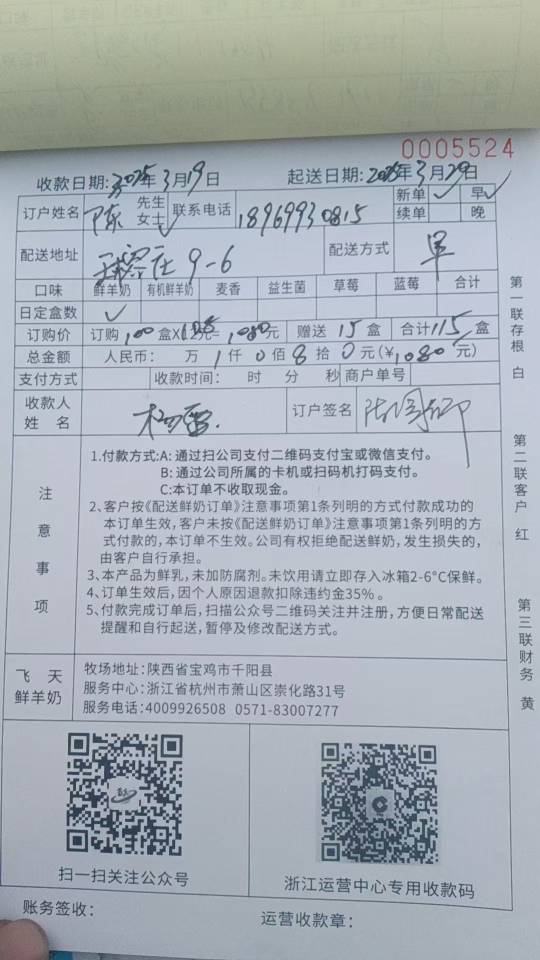 0005524
收款日期:2025年3月19日 起送日期:2025年3月29日
订户姓名 陈 先生 女士✓ 联系电话 18969930815 新单✓ 早✓
续单 晚
配送地址 9-6 配送方式 早
口味 鲜羊奶 有机鲜羊奶 麦香 益生菌 草莓 蓝莓 合计
日定盒数 ✓
订购价 订购100盒X 元=1080元 赠送15盒 合计115盒
总金额 人民币: 万1仟0佰8拾0元(¥1080元)
支付方式 收款时间: 时 分 秒 商户单号
收款人姓名 订户签名
注意事项
1.付款方式:A: 通过扫公司支付二维码支付宝或微信支付。
B: 通过公司所属的卡机或扫码机打码支付。
C:本订单不收取现金。
2、客户按《配送鲜奶订单》注意事项第1条列明的方式付款成功的
本订单生效,客户未按《配送鲜奶订单》注意事项第1条列明的方
式付款的,本订单不生效。公司有权拒绝配送鲜奶,发生损失的,
由客户自行承担。
3、本产品为鲜乳，未加防腐剂。未饮用请立即存入冰箱2-6°C保鲜。
4、订单生效后,因个人原因退款扣除违约金35%。
5、付款完成订单后,扫描公众号二维码关注并注册,方便日常配送
提醒和自行起送,暂停及修改配送方式。
飞天鲜羊奶
牧场地址:陕西省宝鸡市千阳县
服务中心:浙江省杭州市萧山区崇化路31号
服务电话:4009926508 0571-83007277
扫一扫关注公众号
浙江运营中心专用收款码
账务签收:
运营收款章:
第一联存根 白
第二联客户 红
第三联财务 黄